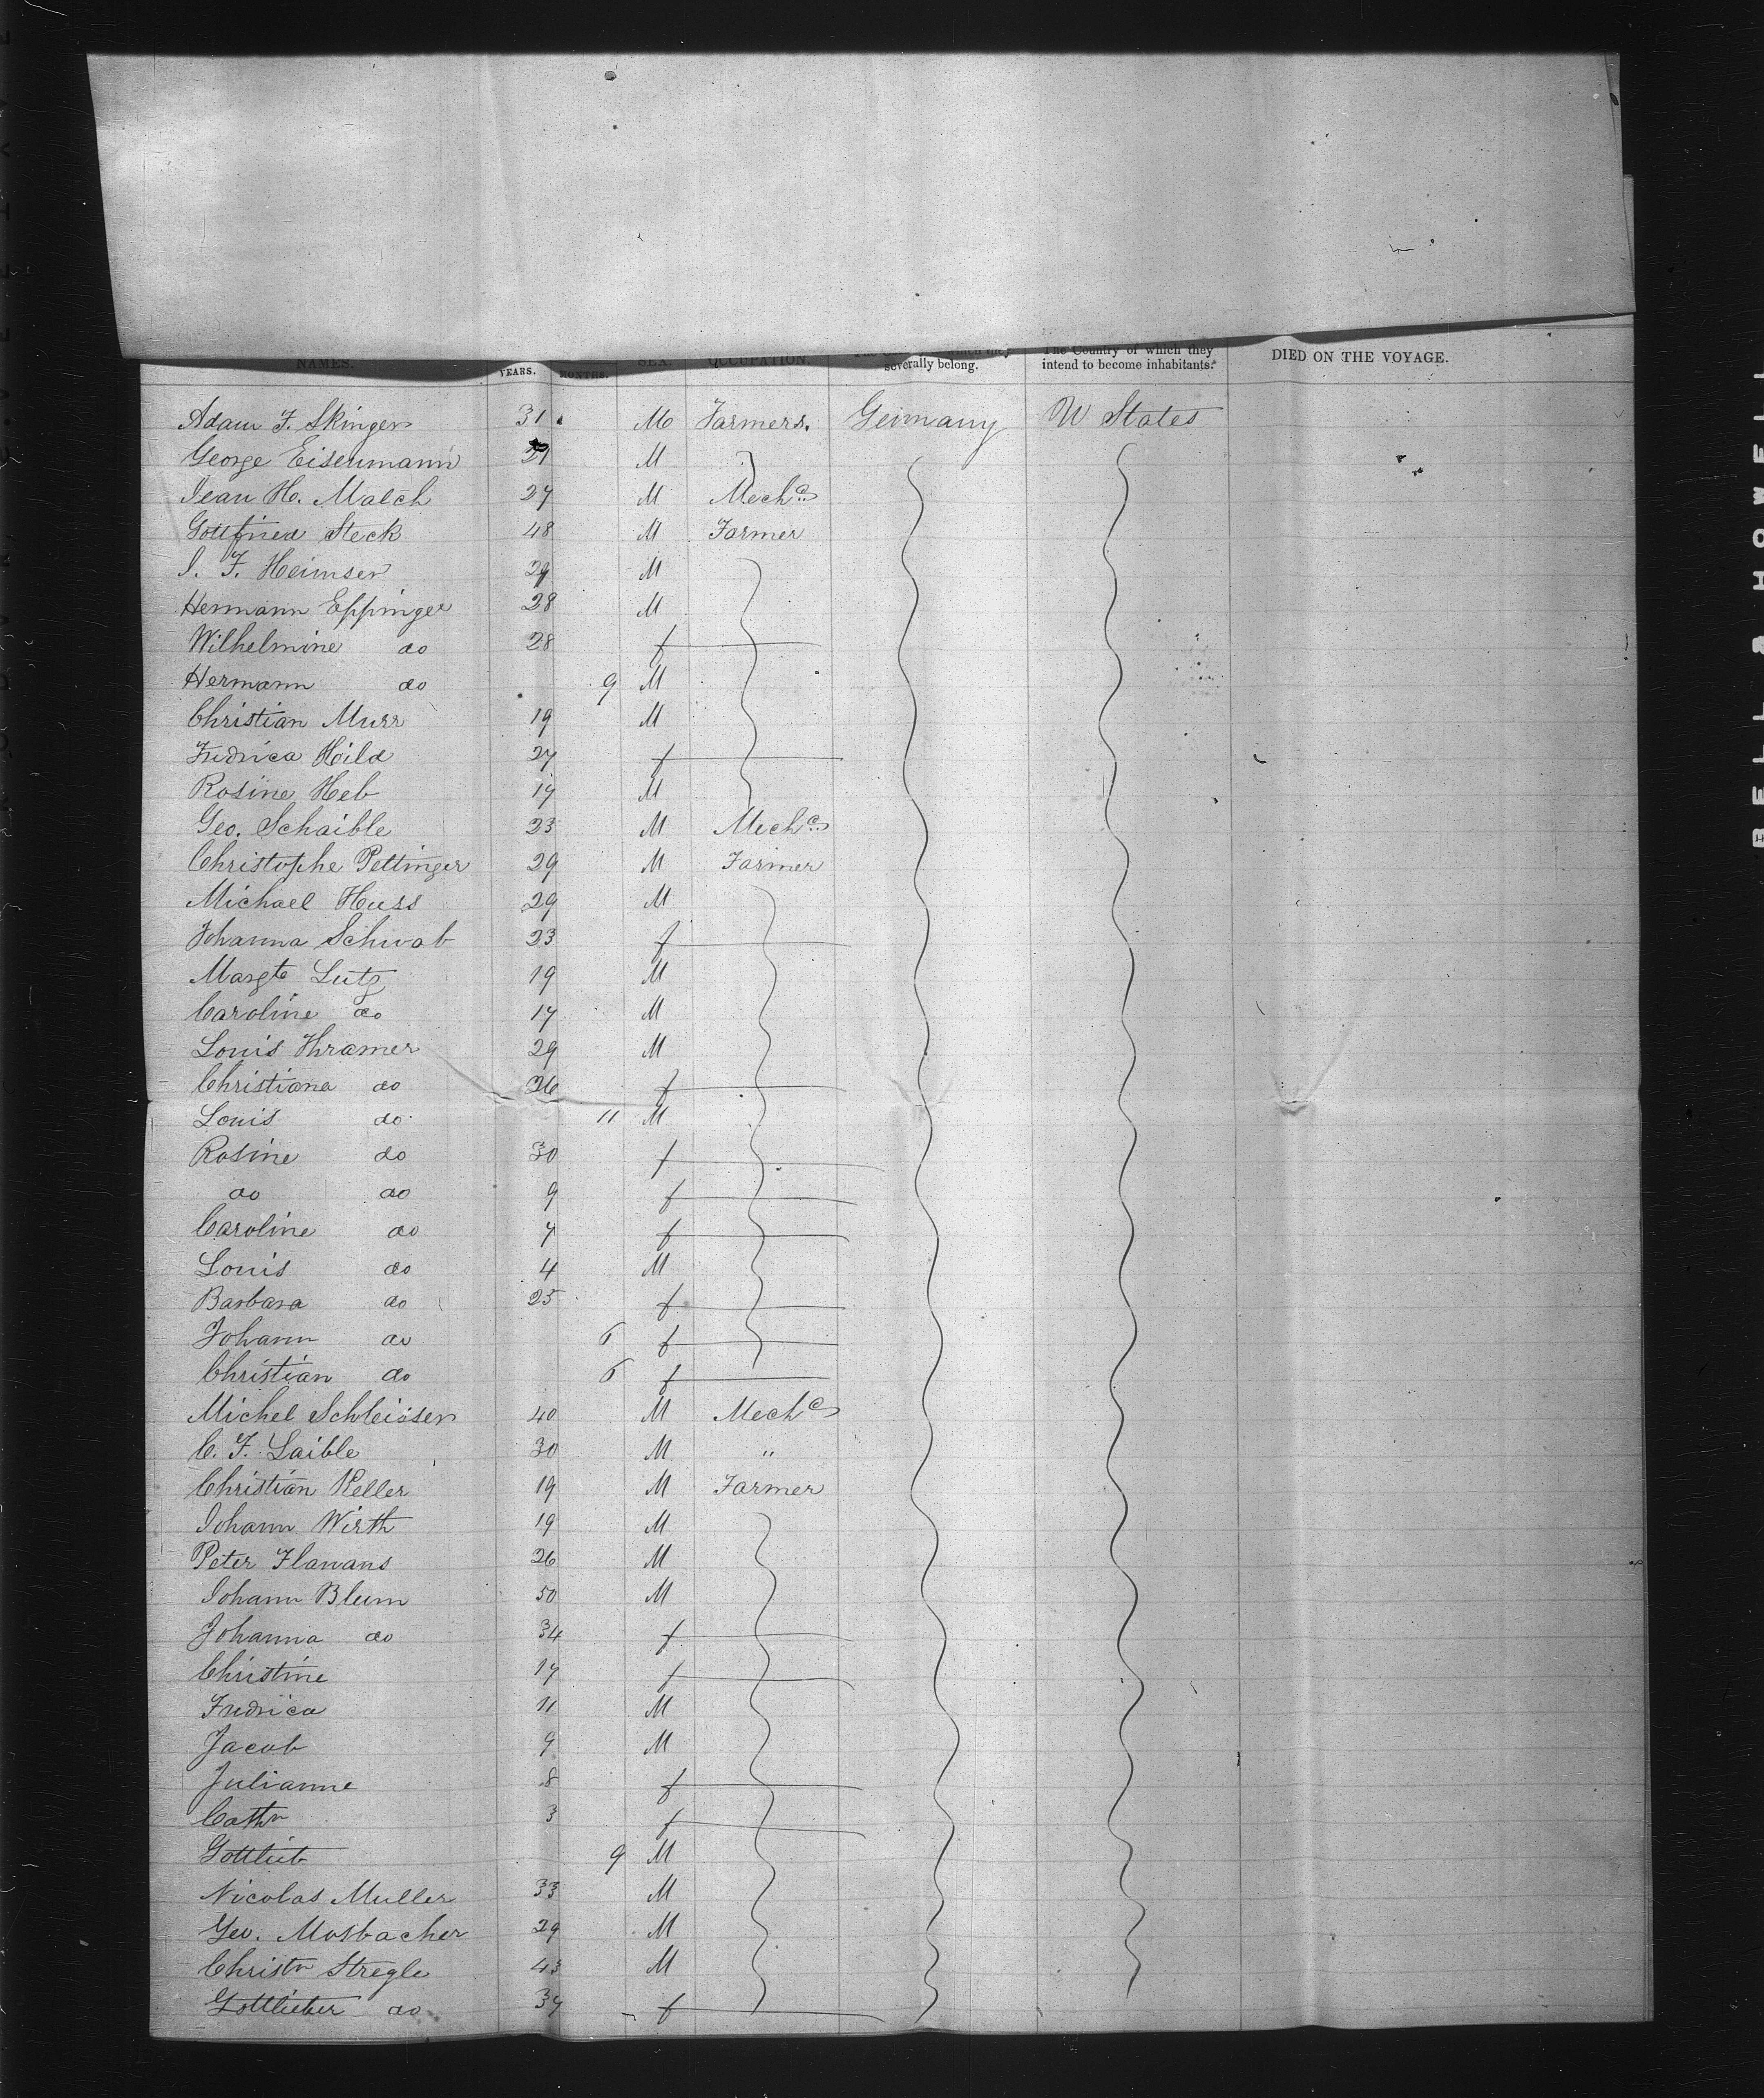 NAMES. YEARS. MONTHS. SEX. OCCUPATION. severally belong. The Country of which they intend to become inhabitants. DIED ON THE VOYAGE.
Adam F. Skinger 31 M Farmers. Germany U States
George Eisenmann 21 M
Jean H. Malch 27 M Mechc
Gottfried Steck 48 M Farmer
J. F. Heimser 29 M
Hermann Eppinger 28 M
Wilhelmine do 28 f
Hermann do 9 M
Christian Murr 19 M
Fredrica Hild 27 f
Rosine Heb 17 M
Geo. Schaible 23 M Mechc
Christophe Pettinger 29 M Farmer
Michael Huss 29 M
Johanna Schwab 23 f
Margte Lutz 19 M
Caroline do 17 M
Louis Khramer 29 M
Christiana do 26 f
Louis do 11 M
Rosine do 30 f
do do 9 f
Caroline do 7 f
Louis do 4 M
Barbara do 25 f
Johann do 6 f
Christian do 6 f
Michel Schleisser 40 M Mechc
C. F. Laible 30 M "
Christian Keller 19 M Farmer
Johann Wirth 19 M
Peter Flawans 26 M
Johann Blum 50 M
Johanna do 34 f
Christine 17 f
Fredrica 11 M
Jacob 9 M
Julianne 8 f
Cathn 3 f
Gottlieb 9 M
Nicolas Muller 33 M
Geo. Mosbacher 29 M
Christn Stregle 43 M
Gottlieber do 37 f
BELL & HOWELL